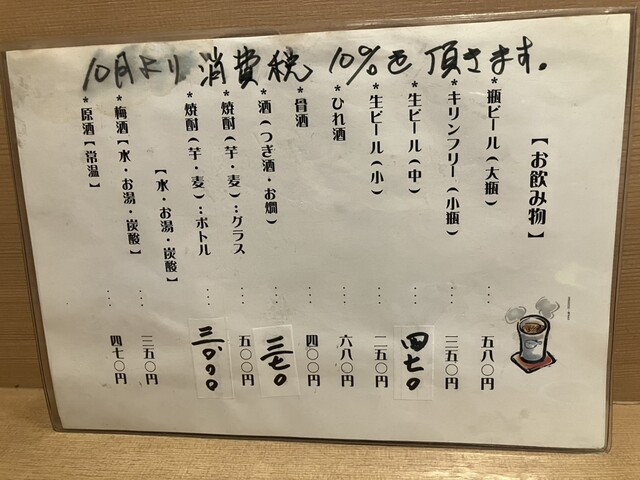 10月より消費税10%を頂きます。
【お飲み物】
*瓶ビール(大瓶)…五八〇円
*キリンフリー(小瓶)…三五〇円
*生ビール(中)…四七〇
*生ビール(小)…二五〇円
*ひれ酒…六八〇円
*骨酒…四〇〇円
*酒(つぎ酒・お燗)…三七〇
*焼酎(芋・麦)：グラス…五〇〇円
*焼酎(芋・麦)：ボトル…三,〇〇〇
【水・お湯・炭酸】
*梅酒【水・お湯・炭酸】…三五〇円
*原酒【常温】…四七〇円